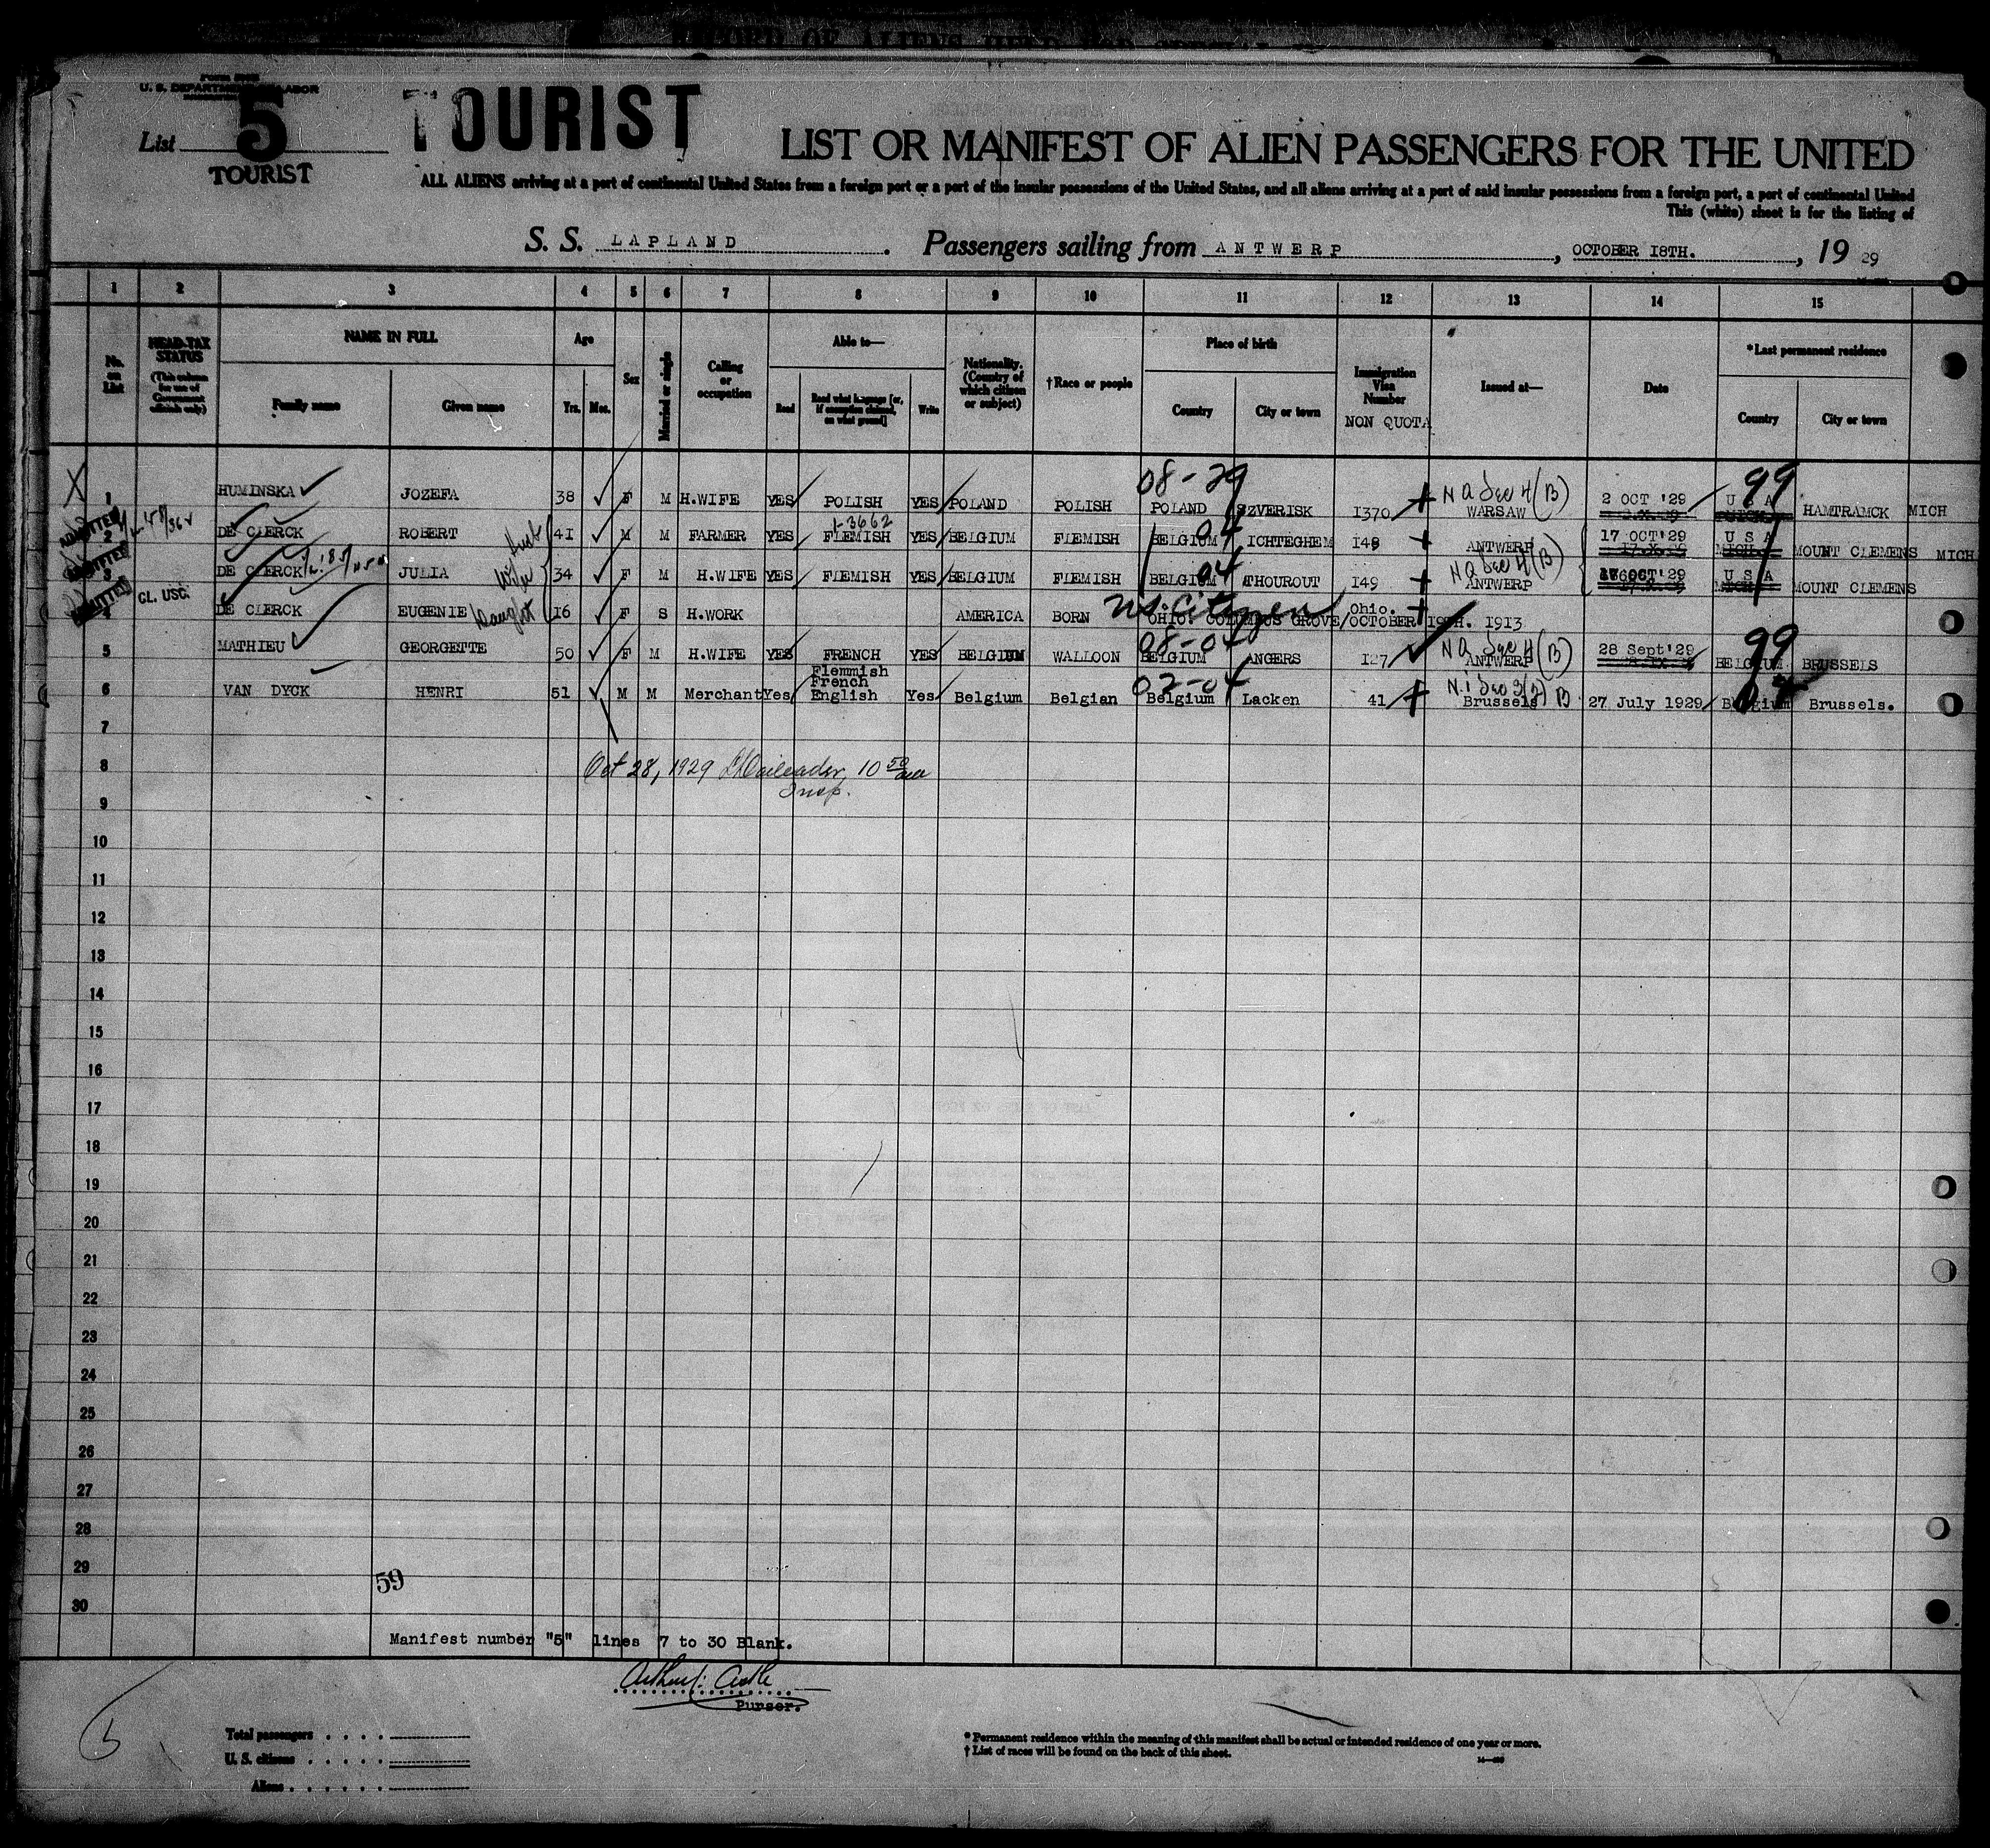 RECORD OF ALIENS HELD FOR
U. S. DEPARTMENT OF LABOR
List 5 TOURIST
TOURIST
LIST OR MANIFEST OF ALIEN PASSENGERS FOR THE UNITED
ALL ALIENS arriving at a port of continental United States from a foreign port or a port of the insular possessions of the United States, and all aliens arriving at a port of said insular possessions from a foreign port, a port of continental United
This (white) sheet is for the listing of
S. S. LAPLAND. Passengers sailing from ANTWERP, OCTOBER 18TH., 19 29
1 2 3 4 5 6 7 8 9 10 11 12 13 14 15
No. on List
HEAD-TAX STATUS
(This column for use of Government officials only)
NAME IN FULL
Family name Given name
Age
Yrs. Mos.
Sex
Married or single
Calling or occupation
Able to—
Read Read what language [or, if exemption claimed, on what ground] Write
Nationality. (Country of which citizen or subject)
†Race or people
Place of birth
Country City or town
Immigration Visa Number
NON QUOTA
Issued at—
Date
*Last permanent residence
Country City or town
08-29 N Q Sec 4(B) 99
1 HUMINSKA JOZEFA 38 F M H.WIFE YES POLISH YES POLAND POLISH POLAND SZVERISK 1370 WARSAW 2 OCT '29 U S A HAMTRAMCK MICH
ADMITTED 2 DE CLERCK ROBERT Husb 41 M M FARMER YES 1-3662 FLEMISH YES BELGIUM FLEMISH BELGIUM 04 ICHTEGHEM 148 ANTWERP 17 OCT'29 U S A MOUNT CLEMENS MICH
N Q Sec 4(B)
ADMITTED 3 DE CLERCK JULIA Wife 34 F M H.WIFE YES FLEMISH YES BELGIUM FLEMISH BELGIUM 04 THOUROUT 149 ANTWERP OCT'29 U S A MOUNT CLEMENS
ADMITTED 4 CL. USC. DE CLERCK EUGENIE Daught 16 F S H.WORK AMERICA BORN U.S. Citizen OHIO. COLUMBUS GROVE/OCTOBER 19TH. 1913
Ohio.
08-04 N Q Sec 4(B) 99
5 MATHIEU GEORGETTE 50 F M H.WIFE YES FRENCH YES BELGIUM WALLOON BELGIUM ANGERS 127 ANTWERP 28 Sept'29 BELGIUM BRUSSELS
Flemmish
French
02-04 N.i Sec 3(2) B 04
6 VAN DYCK HENRI 51 M M Merchant Yes English Yes Belgium Belgian Belgium Lacken 41 Brussels 27 July 1929 Belgium Brussels.
7
8 Oct 28, 1929 10 50
Insp.
9
10
11
12
13
14
15
16
17
18
19
20
21
22
23
24
25
26
27
28
29
59
30
Manifest number "5" lines 7 to 30 Blank.
Purser.
Total passengers
U. S. citizens
Aliens
* Permanent residence within the meaning of this manifest shall be actual or intended residence of one year or more.
† List of races will be found on the back of this sheet.